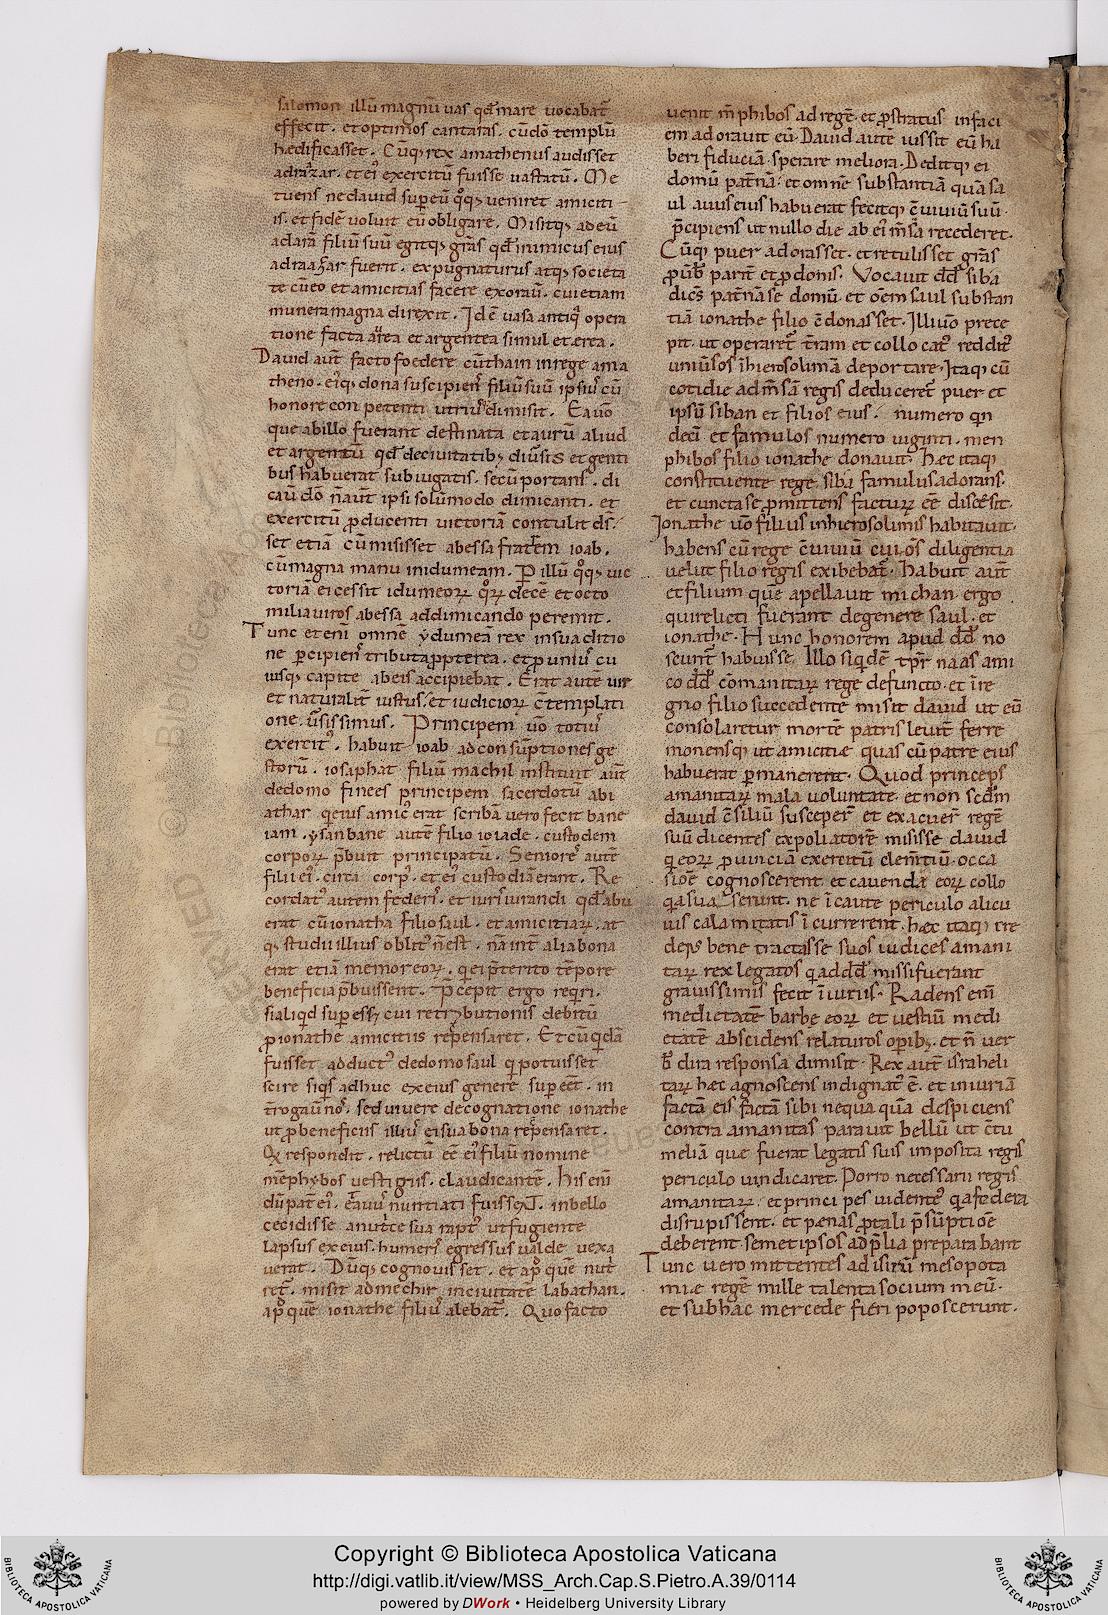 salomon illū magnū uas qđ mare uocabat᷑
effecit. et optimos cantaras. cū dō templū
hædificasset. Cūq; rex amathenus audisset
adrazar. et ei᷒ exercitū fuisse uastatū. Me
tuens ne dauid sup eū q̊q; ueniret amiciti
is. et fidē uoluit eū obligare. Misitq; ad eū
adarā filiū suū egitq; grās qđ inimicus eius
adraazar fuerit. expugnaturus atq; societa
te cū eo et amicitias facere exorau̅. cui etiam
munera magna direxit. Idē uasa antiq̇ opera
tione facta aurea et argentea simul et erea.
Dauid aut̄ facto foedere cū thain in rege ama
theno. eiq; dona suscipiens filiū suū ipsius cū
honore con petenti utrius dimisit. Ea uō
que ab illo fuerant destinata et aurū aliud
et argentū qđ de ciuitatib; diūsis et genti
bus habuerat subiugatis. secū portans. di
cau̅ dō n̄ aut̄ ipsi solūmodo dimicanti. et
exercitū ꝓducenti uictoriā contulit ds̄.
set etiā cū misisset abessa fratrem ioab.
cū magna manu in idumeam. P illū q̊q; uic
toriā ei cessit idumeoꝝ q̊ꝝ decē et octo
milia uiros abessa addimicando peremit.
Tunc et eni omnē ydumeā rex in sua ditio
ne p̄cipiens tributa ꝓpterea. et ꝓ unius cu
iusq; capite ab eis accipiebat. Erat autē uir
et naturalit̄ iustus. et iudicioꝝ c̄templati
one. ūsissimus. Principem uō totius
exercit᷒. habuit ioab ad consūptiones ge
storū. iosaphat filiū machil instituit aut̄
de domo finees principem sacerdotū abi
athar q̇ eius amic᷒ erat scribā uero fecit bane
iam. ysanbane autē filio ioiade. custodem
corpoꝝ p̄buit principatū. Seniores autē
filii ei᷒. circa corp᷒. et ei᷒ custodiā erant. Re
cordat᷒ autem federis. et iuris iurandi qđ abu
erat cū ionatha filio saul. et amicitiaꝝ. at
q; studii illius oblit᷒ n̄ est. nā int̄ alia bona
erat etiā memor eoꝝ. q̇ ei p̄terito tēpore
beneficia p̄buissent. P̄cepit ergo req̇ri.
si aliq̇d sup ess; cui retributionis debitū
ꝓ ionathe amicitiis rep̄ensaret. Et cū q̇dā
fuisset adduct᷒ de domo saul q̇ potuisset
scire siq̇s adhuc ex eius genere sup eēt. in
t̄rogau̅ no᷒. sed uiuere de cognatione ionathe
ut ꝓ beneficiis illius ei sua bona rep̄ensaret.
Q̇ respondit. relictū eē ei᷒ filiū nomine
mēphybos uestigiis. claudicantē. His enī
dū pat̄ ei᷒. et auus nuntiati fuissent. in bello
cecidisse. a nutrice sua rapt᷒ ut fugiente
lapsus ex eius. humeris egressus ualde uexa
uerat. Dūq; cognouisset. et ap̄ quē nut̄
ret᷑. misit ad mechir in ciuitate labathan.
ap̄ quē ionathe filius alebat᷑. Quo facto
uenit m̄phibos ad regē. et ꝓstratus in faci
em adorauit eū. Dauid autē iussit eū ha
beri fiduciā. sperare meliora. Deditq; ei
domū pat̄nā. et omnē substantiā quā sa
ul auus eius habuerat fecitq; c̄uiuiū suū.
p̄cipiens ut nullo die ab ei᷒ m̄sa recederet.
Cūq; puer adorasset. et retulisset grās
ꝓ ūb̄ parit̄ et ꝓ donis. Vocauit dđ siba
dicēs pat̄nā se domū. et om̄em saul substan
tiā ionathe filio c̄donasset. Illi uō prece
pit. ut operaret᷑ t̄ram et collocat᷒ reddit᷒
uniūsos ī hierosolimā deportare. Itaq; cū
cotidie ad m̄sā regis deduceret᷑ puer et
ipsū siban et filios eius. numero q̇n
deci et famulos numero uiginti. men
phibos filio ionathe donauit. Hæc itaq;
constituente rege. siba famulus adorans.
et cuncta se ꝓmittens facturꝝ eē discessit.
Ionathe uō filius in hierosolimis habitauit.
habens cū rege c̄uiuiū cui om̄s diligentia
uelut filio regis exibebat᷑. Habuit aut̄
et filium quē apellauit michan. ergo
qui relicti fuerant de genere saul. et
ionathe. Hunc honorem apud dđ no
scunt᷑ habuisse. Illo siq̇dē tp̄r naas ami
co dđ c̄omanitaꝝ rege defuncto. et ī re
gno filio succedente misit dauid ut eū
consolaretur mortē patris leuit̄ ferre
monensq; ut amicitie quas cū patre eius
habuerat p̄manerent. Quod princeps
amanitaꝝ mala uoluntate. et non scdm̄
dauid c̄siliū susceper̄ et exacuer̄ regē
suū dicentes expoliatorē misisse dauid
q̇ eoꝝ ꝓuinciā exercitū clem̄tiū. occa
sioē cognoscerent et cauenda eorꝝ collo
q̇a sua serunt. ne ī caute periculo alicu
ius calamitatis ī currerent. hæc itaq; cre
dens bene tractasse suos iudices amani
taꝝ rex legatos q̇ a dđđ missi fuerant
grauissimis fecit ī iuriis. Radens enī
medietatē barbę eoꝝ et uestiū medi
etatē abscidens relaturos op̄ib;. et n̄ uer
b̄ dira responsa dimisit. Rex aut̄ israheli
taꝝ hæc agnoscens indignat᷒ ē. et iniuriā
factā eis factā sibi nequa quā despiciens
contra amanitas parauit bellū ut c̄tu
meliā que fuerat legatis suis imposita regis
periculo uindicaret. Porro necessarii regis
amanitaꝝ. et principes uidentes q̇a federa
disrupissent. et pœnas ꝓ tali p̄sūptioē
deberent. semet ipsos ad p̄lia prepara bant
Tunc uero mittentes ad isirū mesopota
miæ regē mille talenta socium meū.
et sub hac mercede fieri poposcerunt.
Copyright © Biblioteca Apostolica Vaticana
http://digi.vatlib.it/view/MSS_Arch.Cap.S.Pietro.A.39/0114
powered by DWork • Heidelberg University Library